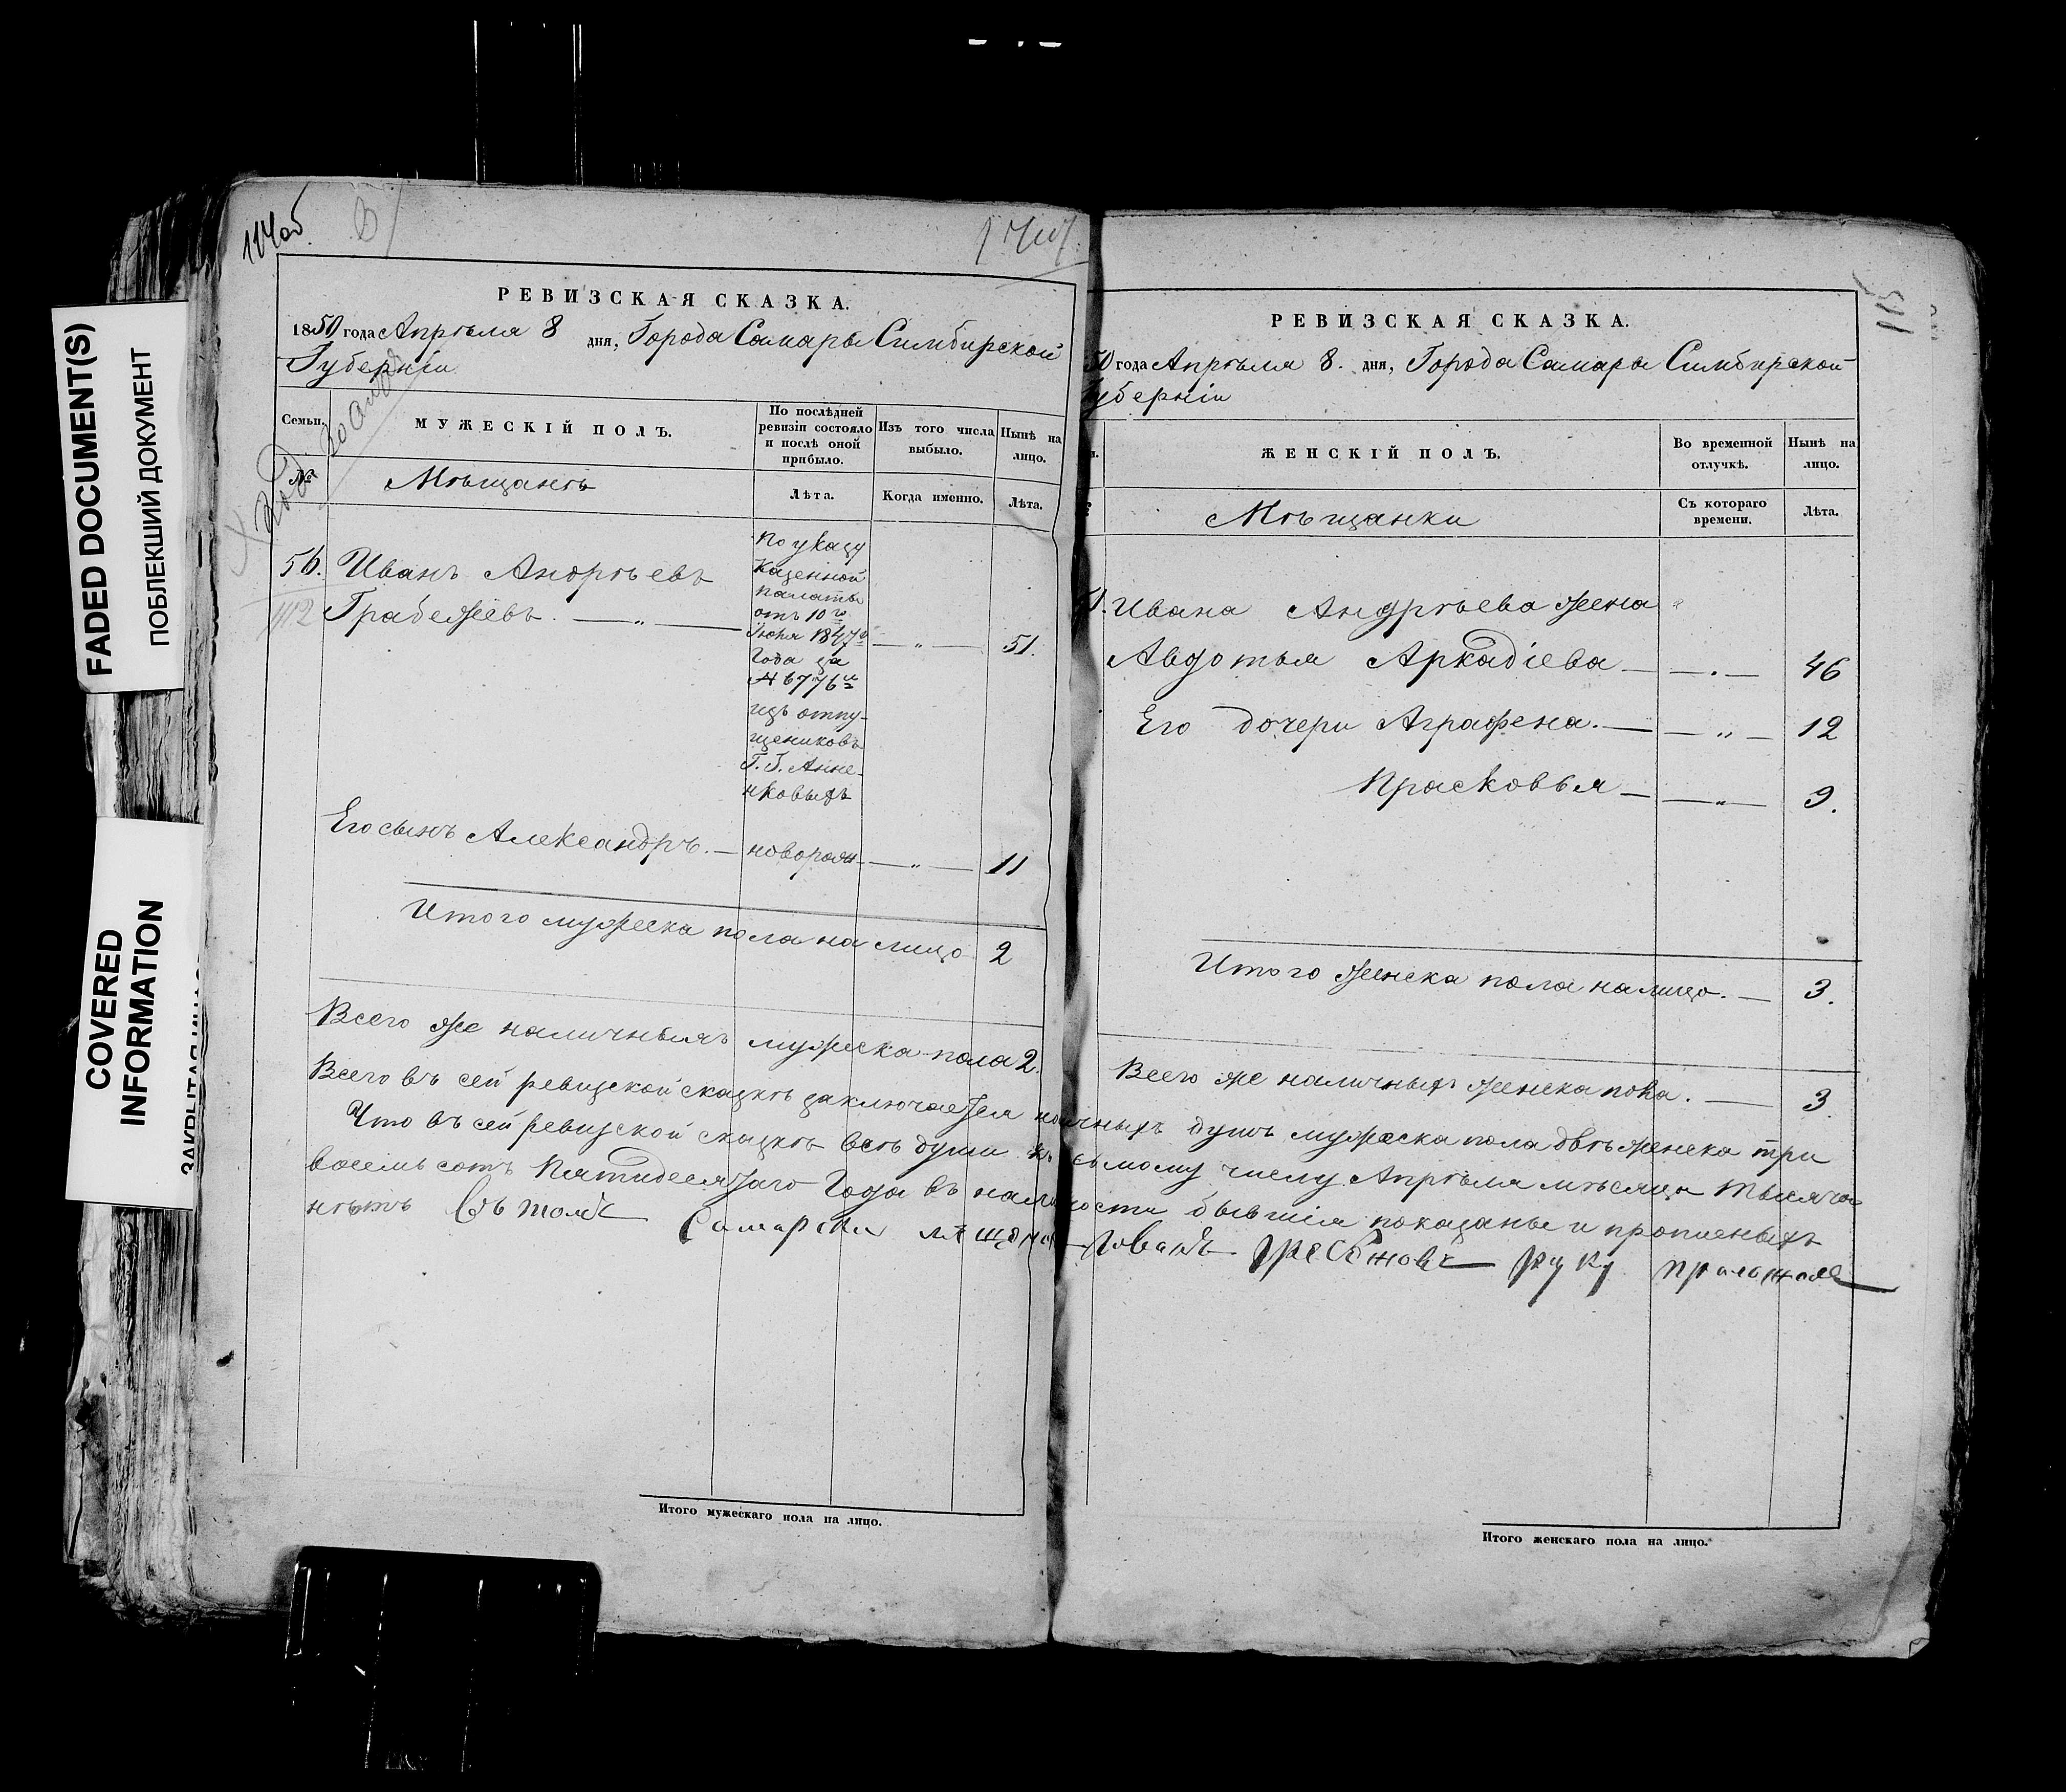 FADED DOCUMENT(S)
ПОБЛЕКШИЙ ДОКУМЕНТ
COVERED
INFORMATION
114об.
РЕВИЗСКАЯ СКАЗКА.
1850 года Апрѣля 8 дня, Города Самары Симбирской
Губерніи
Семьи.
№
МУЖЕСКІЙ ПОЛЪ.
По послѣдней
ревизіи состояло
и послѣ оной
прибыло.
Изъ того числа
выбыло.
Нынѣ на
лицо.
Мѣщанѣ
Лѣта.
Когда именно.
Лѣта.
56. Иванъ Андрѣевъ
Грабежевъ. — „ —
112
По указу
Казенной
Палаты
отъ 10го
Іюня 1847го
Года за
№ 6776м
изъ отпу-
щениковъ
Г.Г. Анне-
нковыхъ
— „ — 51.
Его сынъ Александръ. — новорож — „ — 11
Итого мужеска пола на лицо 2
Всего же наличныхъ мужеска пола 2.
РЕВИЗСКАЯ СКАЗКА.
50 года Апрѣля 8. дня, Города Самары Симбирской
уберніи
ЖЕНСКІЙ ПОЛЪ.
Во временной
отлучкѣ.
Нынѣ на
лицо.
Мѣщанки
Съ котораго
времени.
Лѣта.
Ивана Андрѣева жена
Авдотья Аркадіева — — „ — 46
Его дочери Аграфена. — — „ — 12
Прасковья — — „ — 9.
Итого женска пола на лицо. — 3.
Всего же наличныхъ женска пола. — 3.
Всего въ сей ревизской сказкѣ заключается наличныхъ душъ мужеска пола двѣ женска три
Что въ сей ревизской сказкѣ всѣ души къ осьмому числу Апрѣля мѣсяца тысяча
восемь сотъ Пятидесятаго Года въ наличности бывшія показаны и прописныхъ
нѣтъ Въ томъ Самарски мѣщанинъ Иванъ Гребжовъ руку приложилъ
Итого мужескаго пола на лицо.
Итого женскаго пола на лицо.